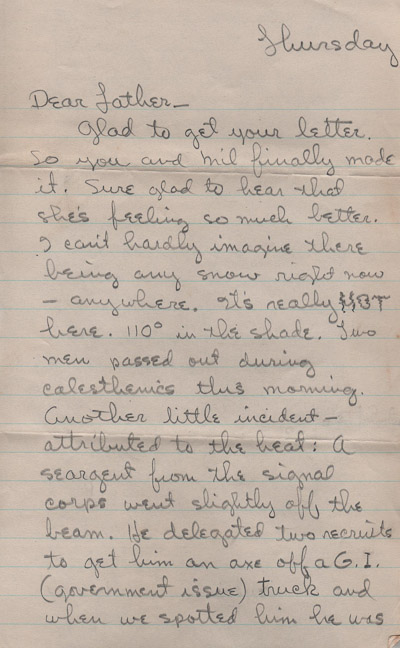 Thursday
Dear Father—
Glad to get your letter.
So you and Mil finally made
it. Sure glad to hear that
she's feeling so much better.
I can't hardly imagine there
being any snow right now
— anywhere. It's really HOT
here. 110° in the shade. Two
men passed out during
calesthenics this morning.
Another little incident—
attributed to the heat: A
seargent from the signal
corps went slightly off the
beam. He delegated two recruits
to get him an axe off a G.I.
(government issue) truck and
when we spotted him he was